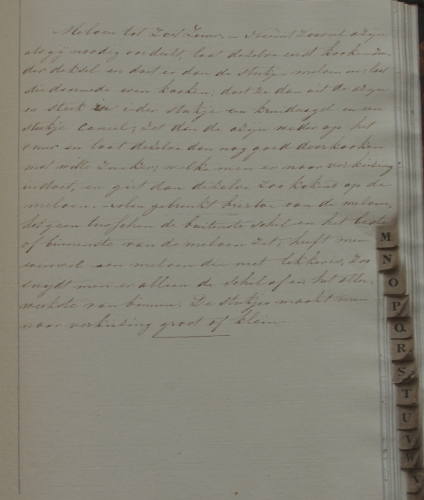 Meloen tot Zoet Zuur. Neemt zooveel azijn
als gij noodig oordeelt, laat dezelve eerst kooken zon
der deksel en doet er dan de stukjes meloen in, laat
die doormede even kooken; doet ze dan uit de azijn
en steek in ieder stukje een kruidnagel en een
stukje caneel; zet dan de azijn weder op het
vuur en laat dezelve dan nog goed doorkooken
met witte suiker; welke men er naar verkiezing
in doet, en giet dan dezelve zoo kokend op de
meloen. Men gebruikt hiertoe van de meloen,
hetgeen tusschen de buitenste schil en het beste
of binnenste van de meloen zit; heeft men
een meloen die niet lekker is, zoo
snijdt men er alleen de schil af en het aller
weekste van binnen. De stukjes maakt men
naar verkiezing groot of klein.
M
N
O
P
Q
R
S
T
U
V
W